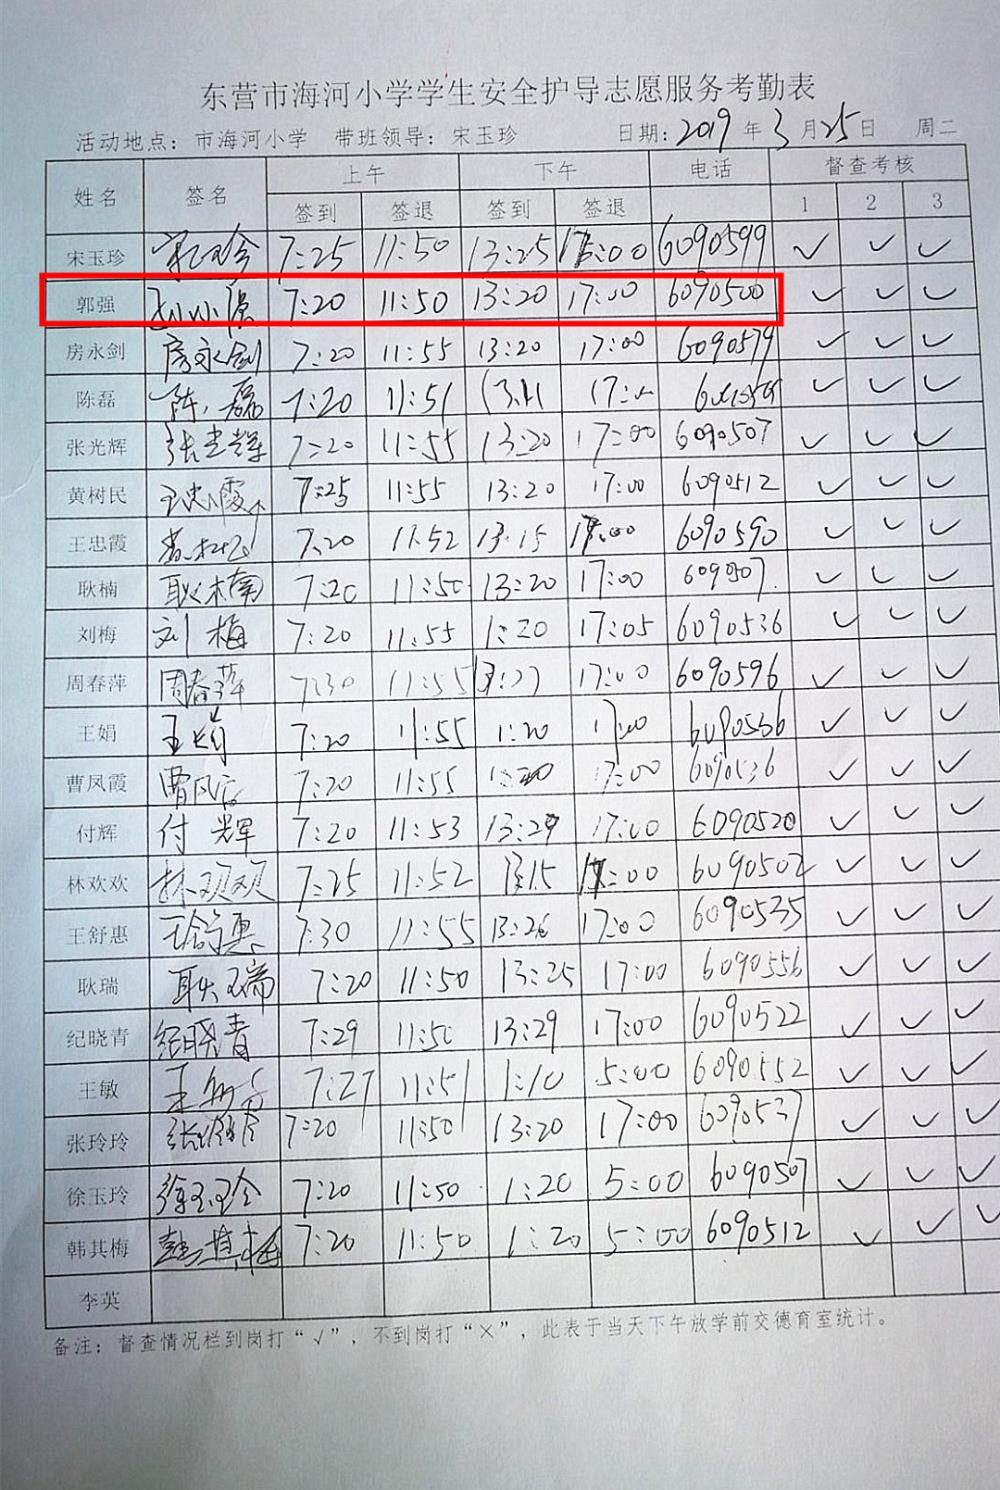 东营市海河小学学生安全护导志愿服务考勤表
活动地点：市海河小学 带班领导：宋玉珍 日期：2019 年 3 月 25 日 周二
姓名 签名 上午 下午 电话 督查考核
签到 签退 签到 签退 1 2 3
宋玉珍 宋玉珍 7:25 11:50 13:25 17:00 6090599 ✓ ✓ ✓
郭强 7:20 11:50 13:20 17:00 6090500 ✓ ✓ ✓
房永剑 房永剑 7:20 11:55 13:20 17:00 6090579 ✓ ✓ ✓
陈磊 陈磊 7:20 11:51 ✓ ✓ ✓
张光辉 张光辉 7:20 11:55 13:20 17:00 6090507 ✓ ✓ ✓
黄树民 王忠霞 7:25 11:55 13:20 17:00 6090512 ✓ ✓ ✓
王忠霞 7:20 11:52 13:15 17:00 6090590 ✓ ✓ ✓
耿楠 耿楠 7:20 11:50 13:20 17:00 ✓ ✓ ✓
刘梅 刘梅 7:20 11:55 1:20 17:05 6090536 ✓ ✓ ✓
周春萍 周春萍 7:30 11:55 17:00 6090596 ✓ ✓ ✓
王娟 王娟 7:20 11:55 1:20 17:00 6090536 ✓ ✓ ✓
曹凤霞 曹凤霞 7:20 11:55 17:00 6090536 ✓ ✓ ✓
付辉 付辉 7:20 11:53 13:29 17:00 6090520 ✓ ✓ ✓
林欢欢 林欢欢 7:25 11:52 13:15 17:00 6090502 ✓ ✓ ✓
王舒惠 王舒惠 7:30 11:55 13:26 17:00 6090535 ✓ ✓ ✓
耿瑞 耿瑞 7:20 11:50 13:25 17:00 6090556 ✓ ✓ ✓
纪晓青 纪晓青 7:29 11:50 13:29 17:00 6090522 ✓ ✓ ✓
王敏 王敏 7:27 11:51 1:10 5:00 6090552 ✓ ✓ ✓
张玲玲 7:20 11:50 13:20 17:00 6090537 ✓ ✓ ✓
徐玉玲 徐玉玲 7:20 11:50 1:20 5:00 6090507 ✓ ✓ ✓
韩其梅 韩其梅 7:20 11:50 1:20 5:00 6090512 ✓ ✓ ✓
李英
备注：督查情况栏到岗打“√”，不到岗打“×”，此表于当天下午放学前交德育室统计。